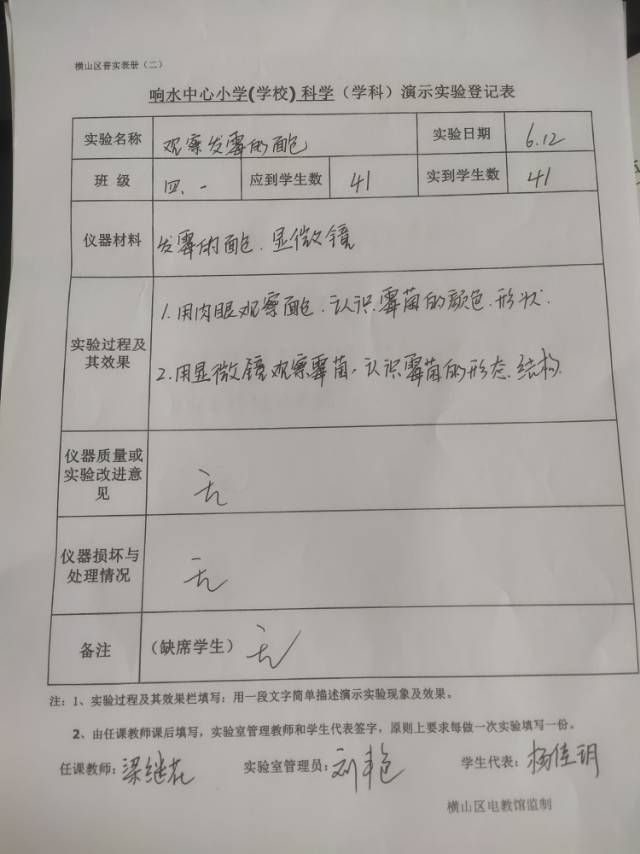 横山区普实表册（二）
响水中心小学(学校) 科学（学科）演示实验登记表
实验名称 观察发霉的面包 实验日期 6.12
班 级 四、一 应到学生数 41 实到学生数 41
仪器材料 发霉的面包、显微镜
实验过程及其效果
1.用肉眼观察面包、认识霉菌的颜色、形状.
2.用显微镜观察霉菌,认识霉菌的形态、结构.
仪器质量或
实验改进意
见
无
仪器损坏与
处理情况
无
备注 （缺席学生）无
注：1、实验过程及其效果栏填写：用一段文字简单描述演示实验现象及效果。
2、由任课教师课后填写，实验室管理教师和学生代表签字，原则上要求每做一次实验填写一份。
任课教师：梁继花 实验室管理员：刘艳 学生代表：杨佳玥
横山区电教馆监制